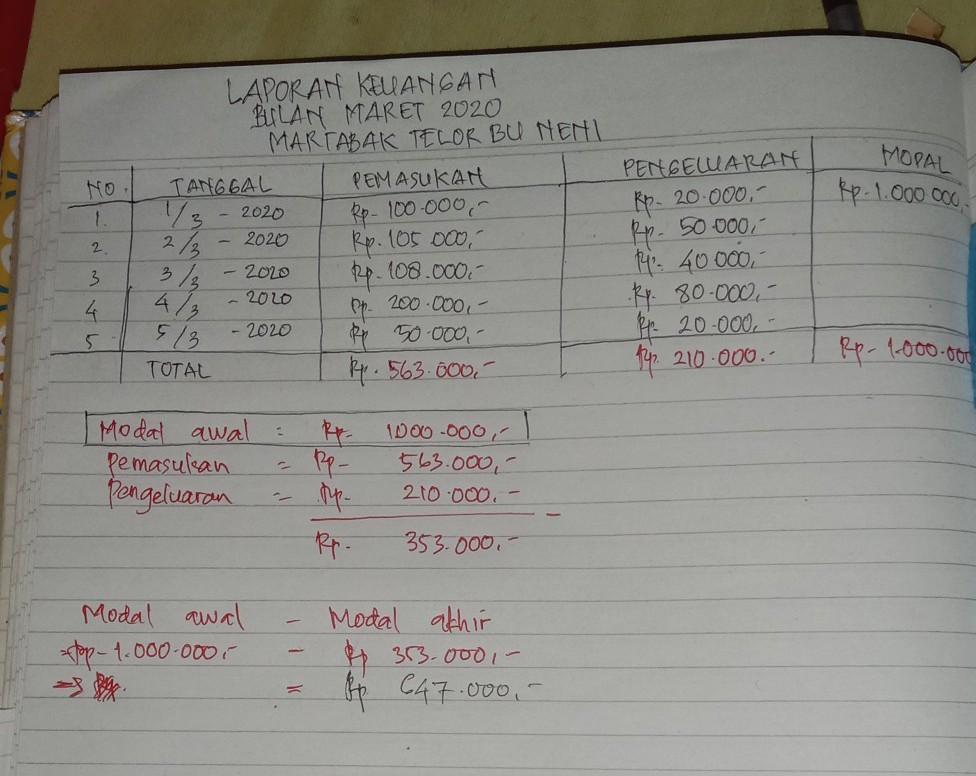 LAPORAN KEUANGAN
BULAN MARET 2020
MARTABAK TELOR BU NENI
NO. TANGGAL PEMASUKAN PENGELUARAN MODAL
1. 1/3 - 2020 Rp- 100.000,- Rp- 20.000,- Rp- 1.000.000,
2. 2/3 - 2020 Rp. 105.000,- Rp- 50.000,-
3 3/3 - 2020 Rp. 108.000,- Rp. 40.000,-
4 4/3 - 2020 Rp. 200.000,- Rp. 80.000,-
5. 5/3 - 2020 Rp 50.000,- Rp- 20.000,-
TOTAL Rp. 563.000,- Rp. 210.000.- Rp- 1.000.000
Modal awal = Rp- 1000.000,-
Pemasukan = Rp- 563.000,-
Pengeluaran = Rp- 210.000.- -
Rp. 353.000,-
Modal awal - Modal akhir
=Rp- 1.000.000,- - Rp 353.000,-
= Rp 647.000,-